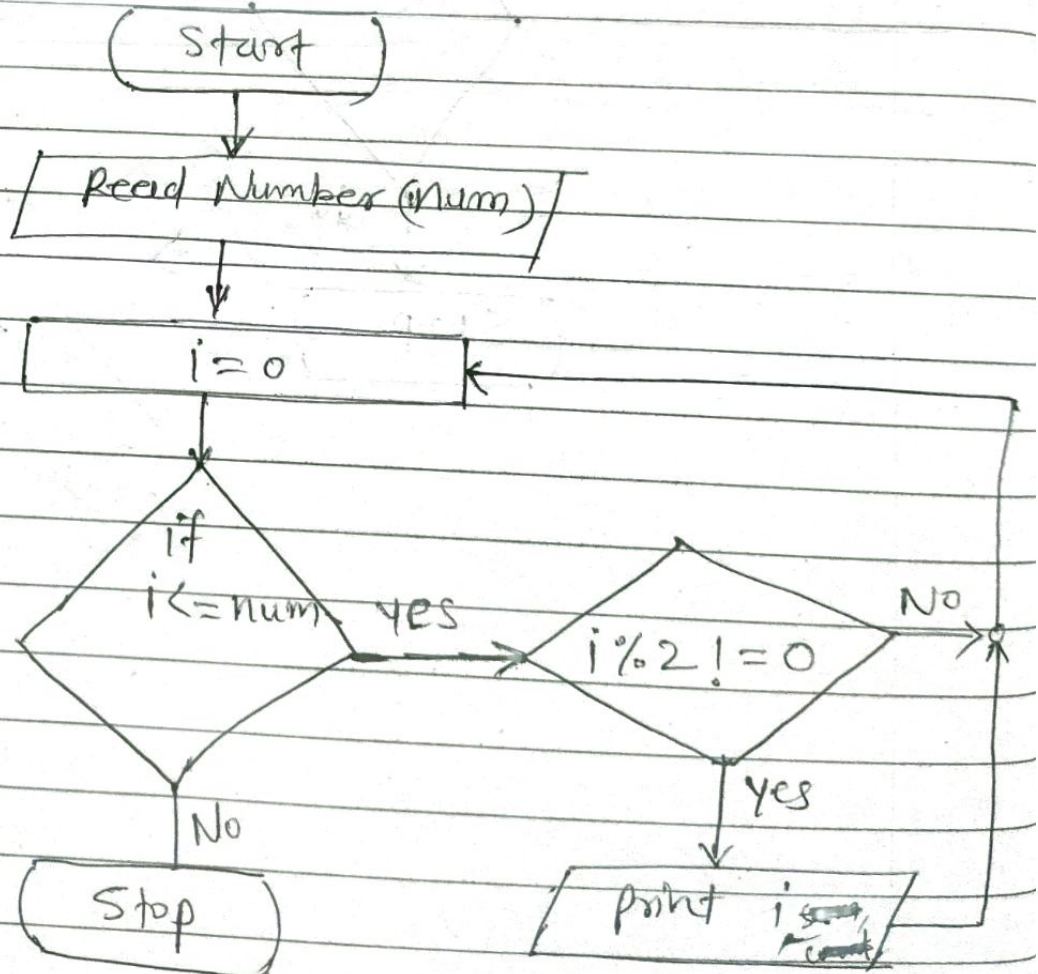 Start
Read Number (num)
i = 0
if
i<=num
yes
i%2 != 0
No
yes
No
print i
Stop